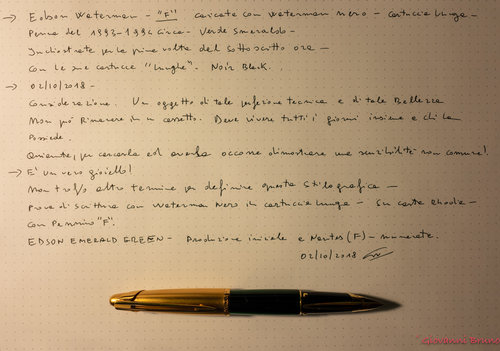 → Edson Waterman - "F" caricata con Waterman nero - cartuccia lunga -
Penna del 1993-1994 circa - Verde Smeraldo -
Inchiostrate per la prima volta dal sottoscritto ora -
con le sue cartucce "lunghe". Noir Black.
→ 02/10/2018 -
Considerazione. Un oggetto di tale perfezione tecnica e di tale Bellezza
non può rimanere in un cassetto. Deve vivere tutti i giorni insieme a chi la
Possiede.
per cercarla ed averla occorre dimostrare una sensibilità non comune!
→ E' un vero gioiello!
Non trovo altro termine per definire questa Stilografica -
Prova di scrittura con Waterman Nero in cartuccia lunga - Su carta Rhodia -
con Pennino "F".
EDSON EMERALD GREEN - Produzione iniziale e (F) - numerata.
02/10/2018